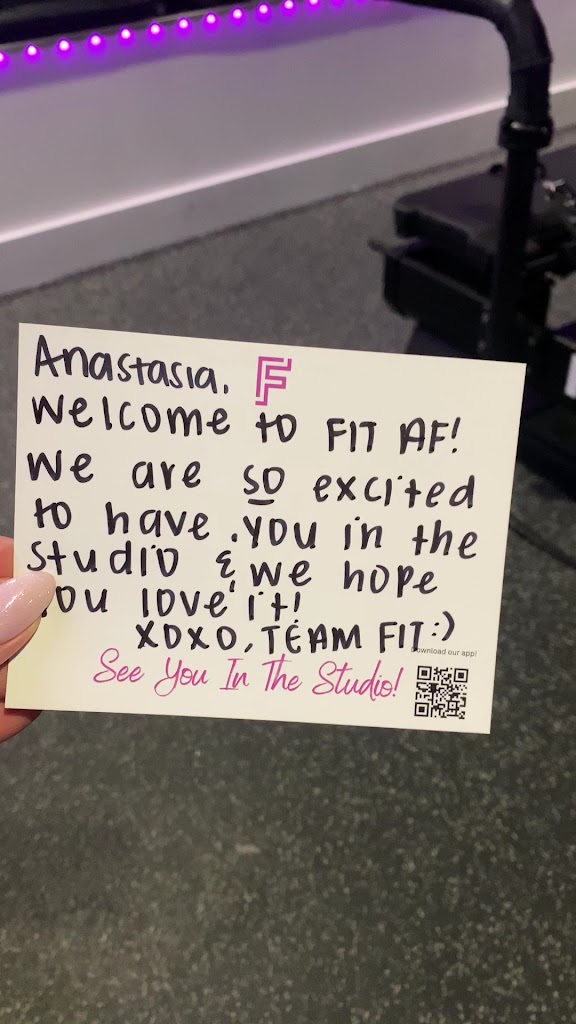 Anastasia, F
Welcome to FIT AF!
We are so excited
to have you in the
studio & we hope
you love it!
XOXO, TEAM FIT :)
Download our app!
See You In The Studio!